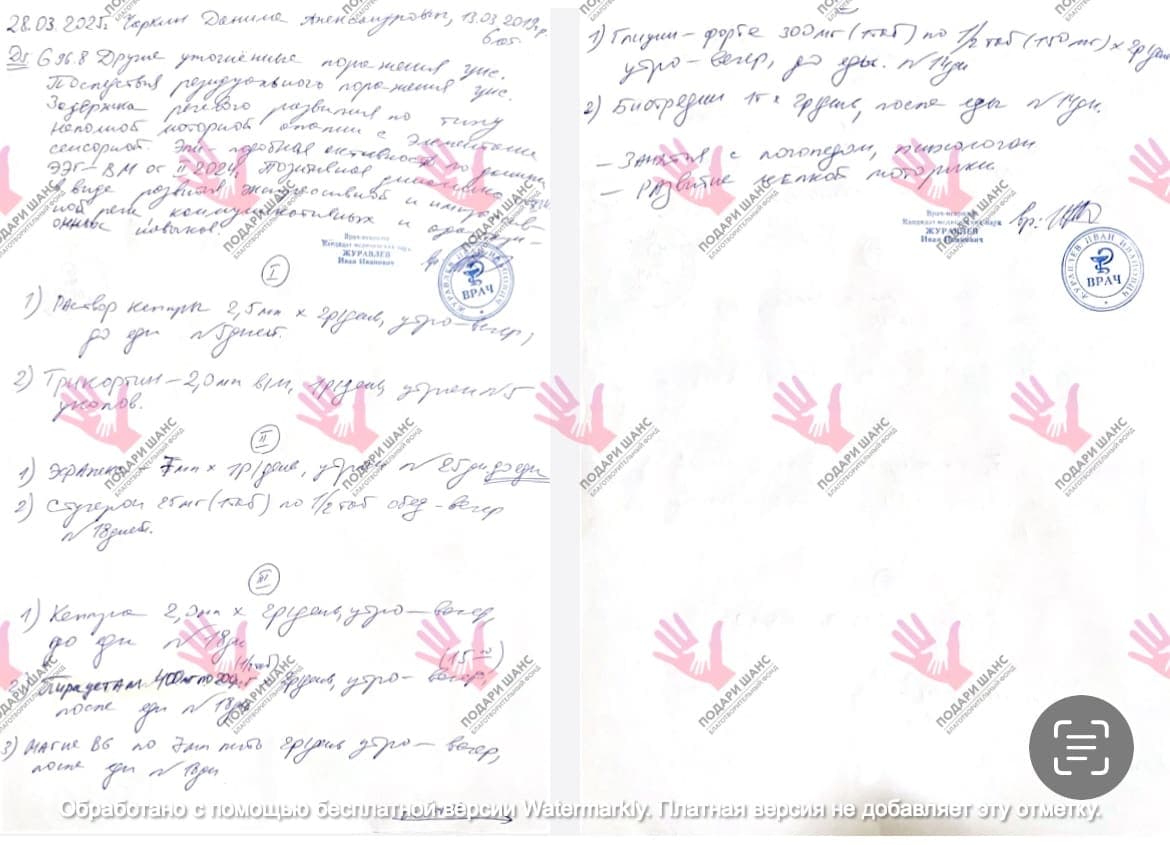 28.03.2025г. Чаркин Данила Александрович, 13.03.2019г.р.
6 лет.
Ds: G 96.8 Другие уточнённые поражения цнс.
Последствия резидуального поражения цнс.
Задержка речевого развития по типу
неполной моторной алалии с элементами
сенсорной. Эпи-подобная активность по данным
ЭЭГ-ВМ от II 2024. Позитивная динамика
в виде развития экспрессивной и импрессив-
ной речи, коммуникативных и
навыков.
Врач-невролог
Кандидат медицинских наук
ЖУРАВЛЕВ
Иван Иванович
вр.
ЖУРАВЛЕВ ИВАН ИВАНОВИЧ
ВРАЧ
I
1) Раствор кеппры 2,5мл х 2р/день, утро-вечер,
до еды №5дней.
2) Трикортин - 2,0мл в/м, 1р/день, утром №5
уколов.
II
1) 7мл х 1р/день, утром № 25дн. до еды
2) Стугерон 25мг (1таб) по 1/2 таб обед-вечер
№ 18дней.
III
1) Кеппра 2,0мл х 2р/день, утро-вечер,
до еды № 18дн
(1/2таб) (15 00)
2) Пирацетам 400мг по 200мг х 2р/день, утро-вечер,
после еды № 18дн
3) Магне В6 по 7мл пить 2р/день утро-вечер,
после еды № 18дн.
1) Глицин-форте 300мг (1таб) по 1/2 таб (150мг) х 2р/день
утро-вечер, до еды. №14дн
2) Биотредин 1т х 2р/день, после еды №14дн.
- Занятия с логопедом, психологом
- Развитие мелкой моторики.
Врач-невролог
Кандидат медицинских наук
ЖУРАВЛЕВ
Иван Иванович
вр:
ЖУРАВЛЕВ ИВАН ИВАНОВИЧ
ВРАЧ
ПОДАРИ ШАНС
БЛАГОТВОРИТЕЛЬНЫЙ ФОНД
Обработано с помощью бесплатной версии Watermarkly. Платная версия не добавляет эту отметку.